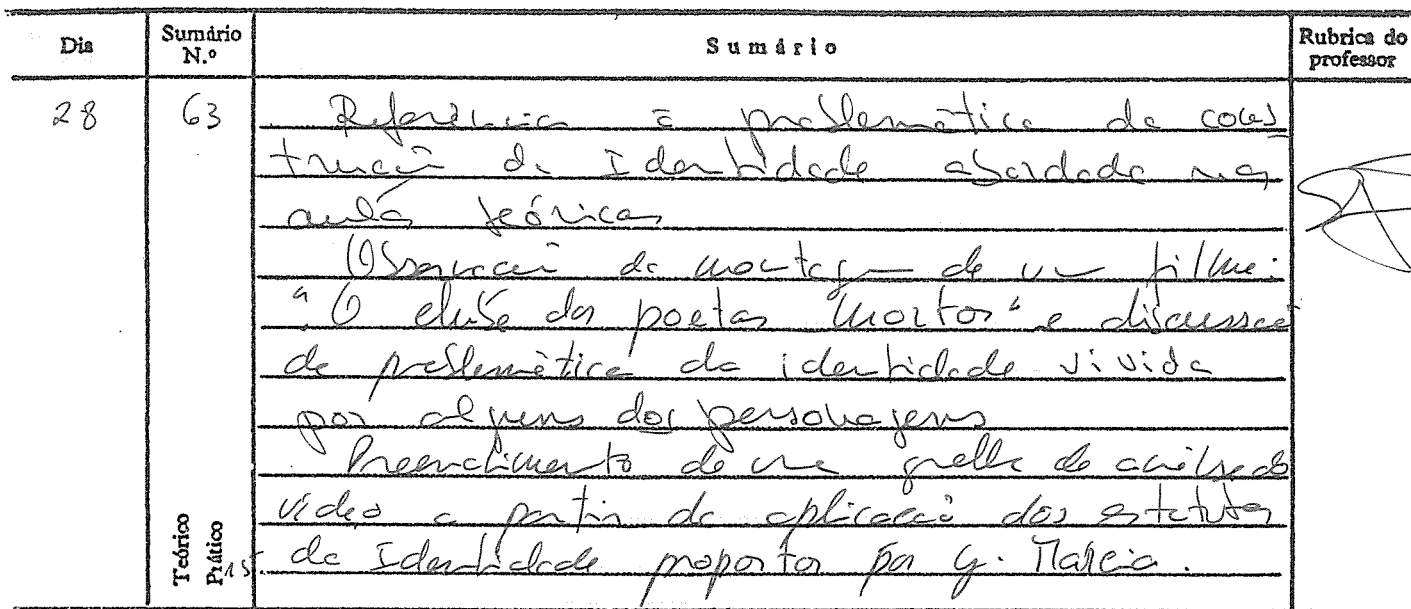 Dia Sumário N.º Sumário Rubrica do professor
28 63 Referência à problemática da cons
trução da Identidade abordada nas
aulas teóricas
Observação da montagem de um filme:
"O clube dos poetas mortos" e discussão
da problemática da identidade vivida
por alguns dos personagens
Preenchimento de uma grelha de análise do
vídeo a partir da aplicação dos estatutos
da Identidade propostos por G. Marcia.
Teórico
Prático 15